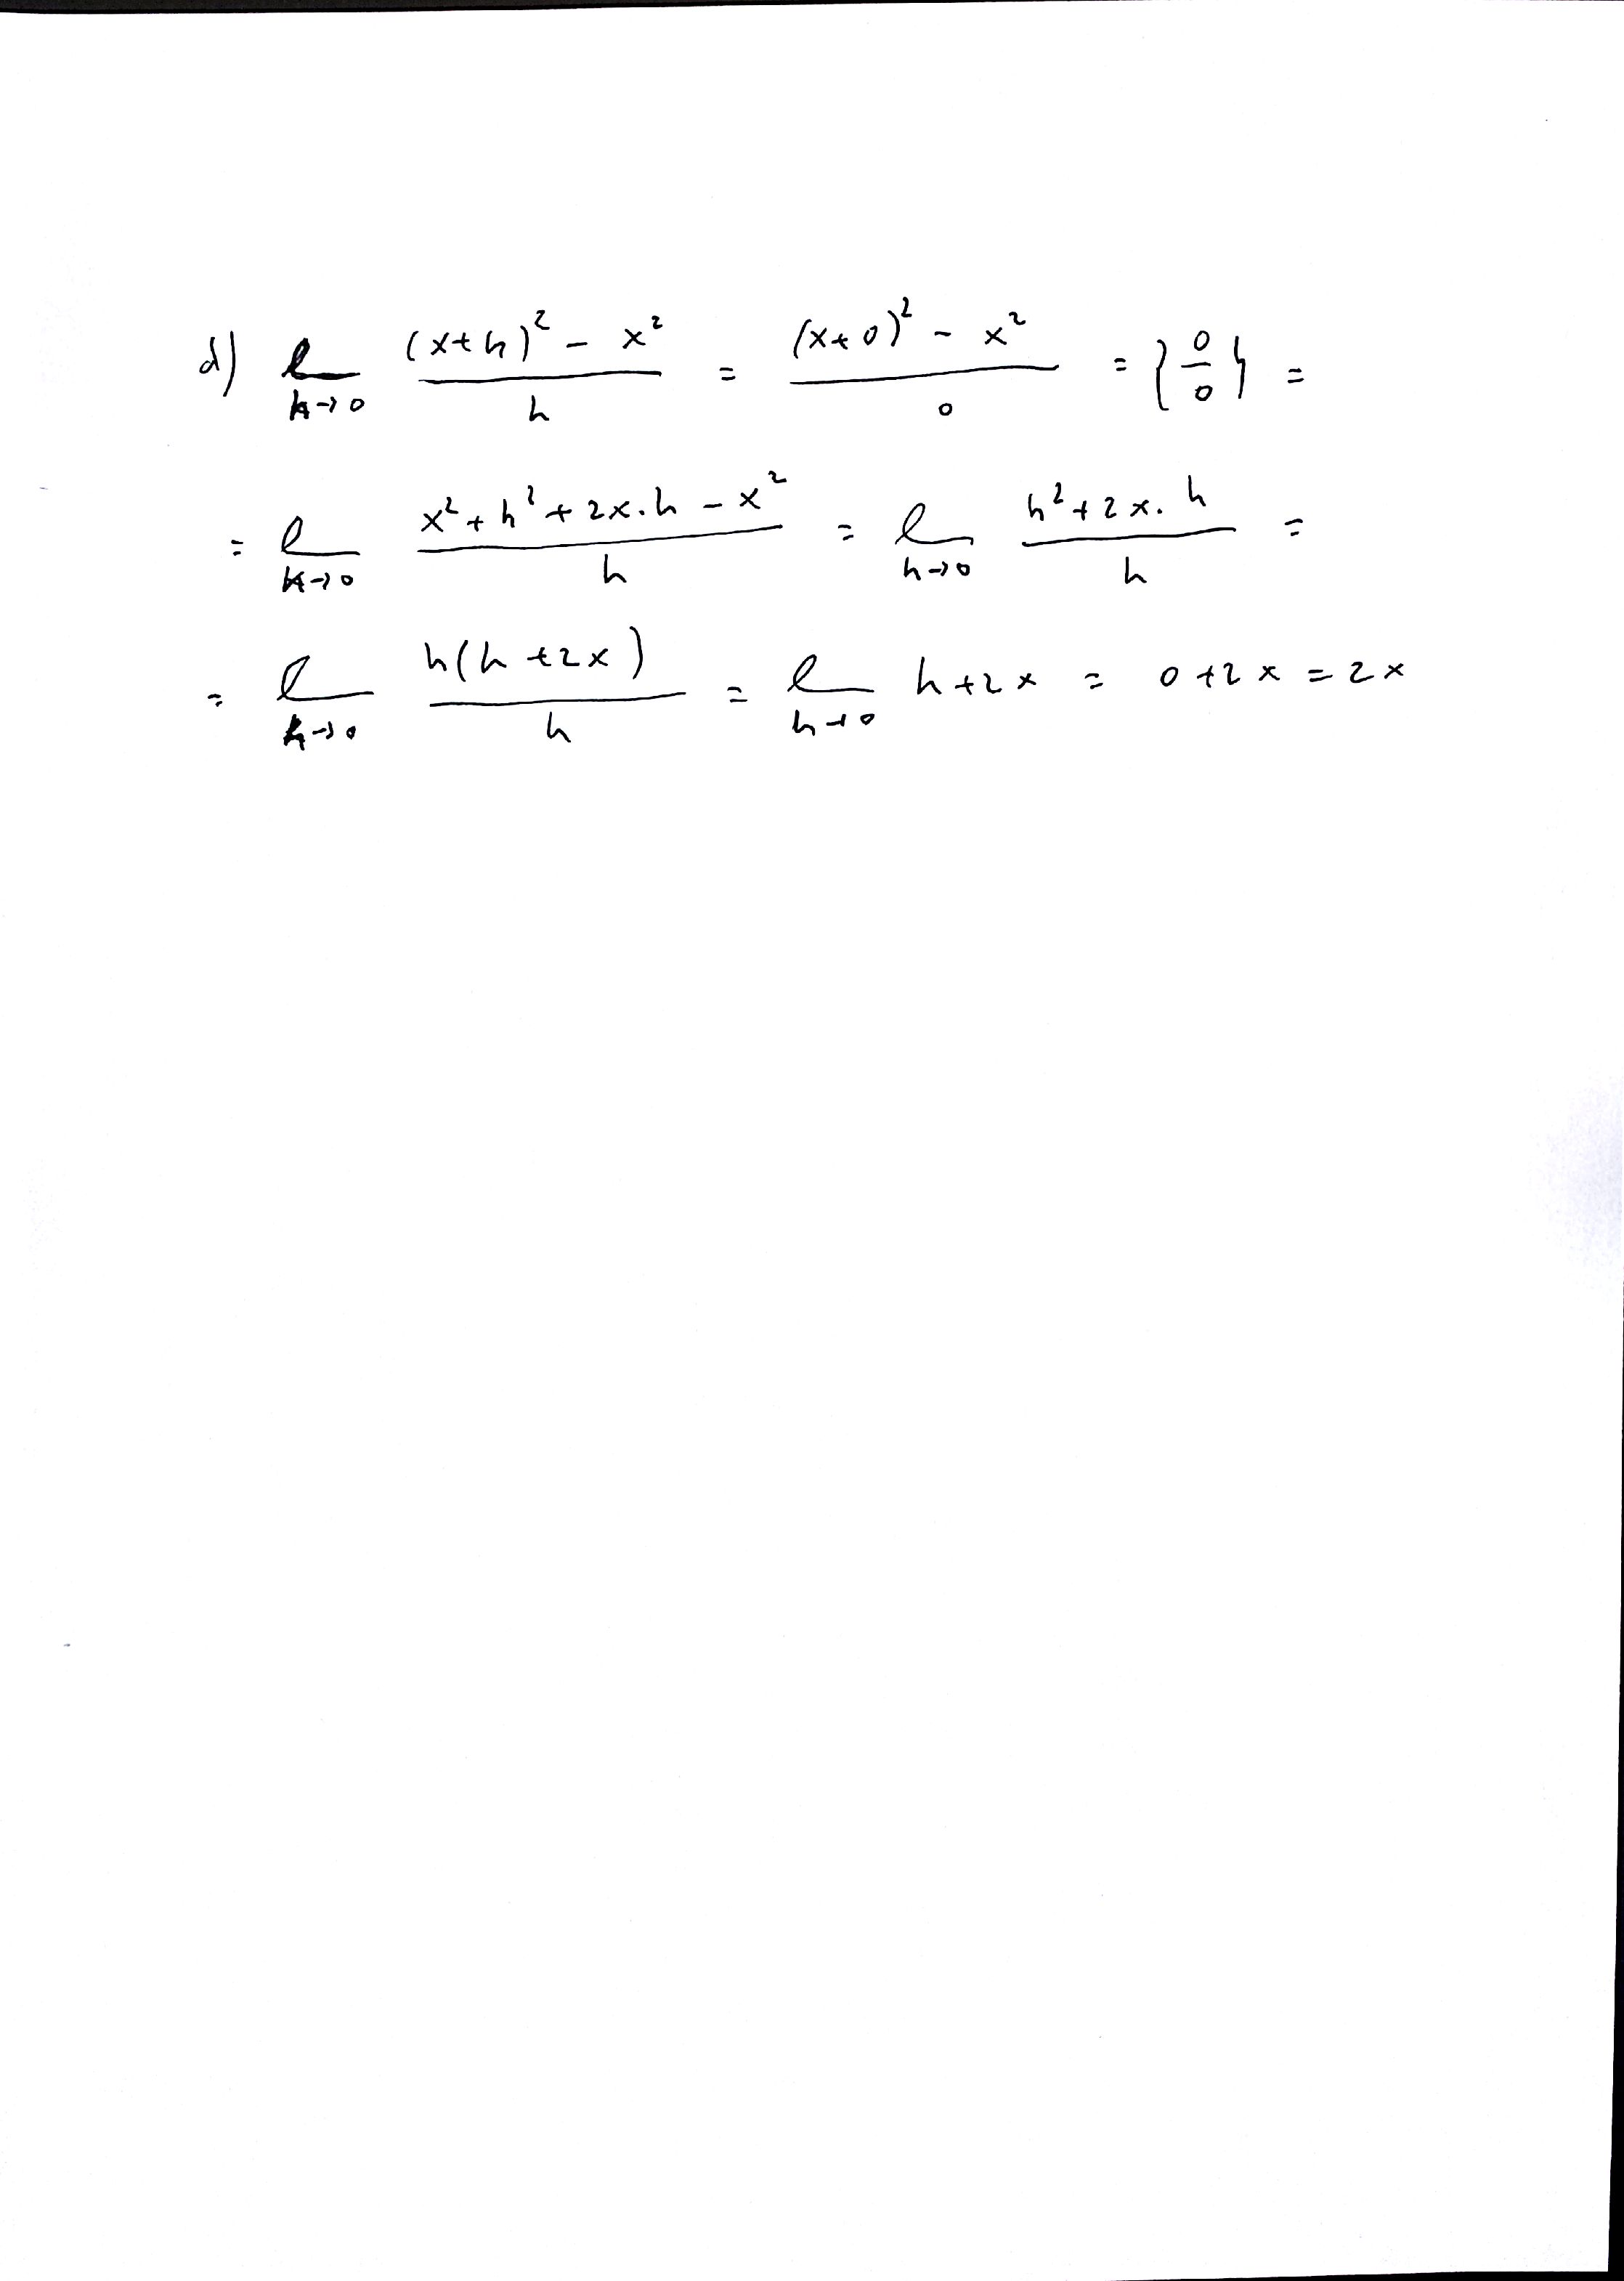 d) l h→0 (x+h)² - x² / h = (x+0)² - x² / 0 = {0/0} =
= l h→0 x² + h² + 2x.h - x² / h = l h→0 h² + 2x.h / h =
= l h→0 h(h+2x) / h = l h→0 h+2x = 0+2x = 2x